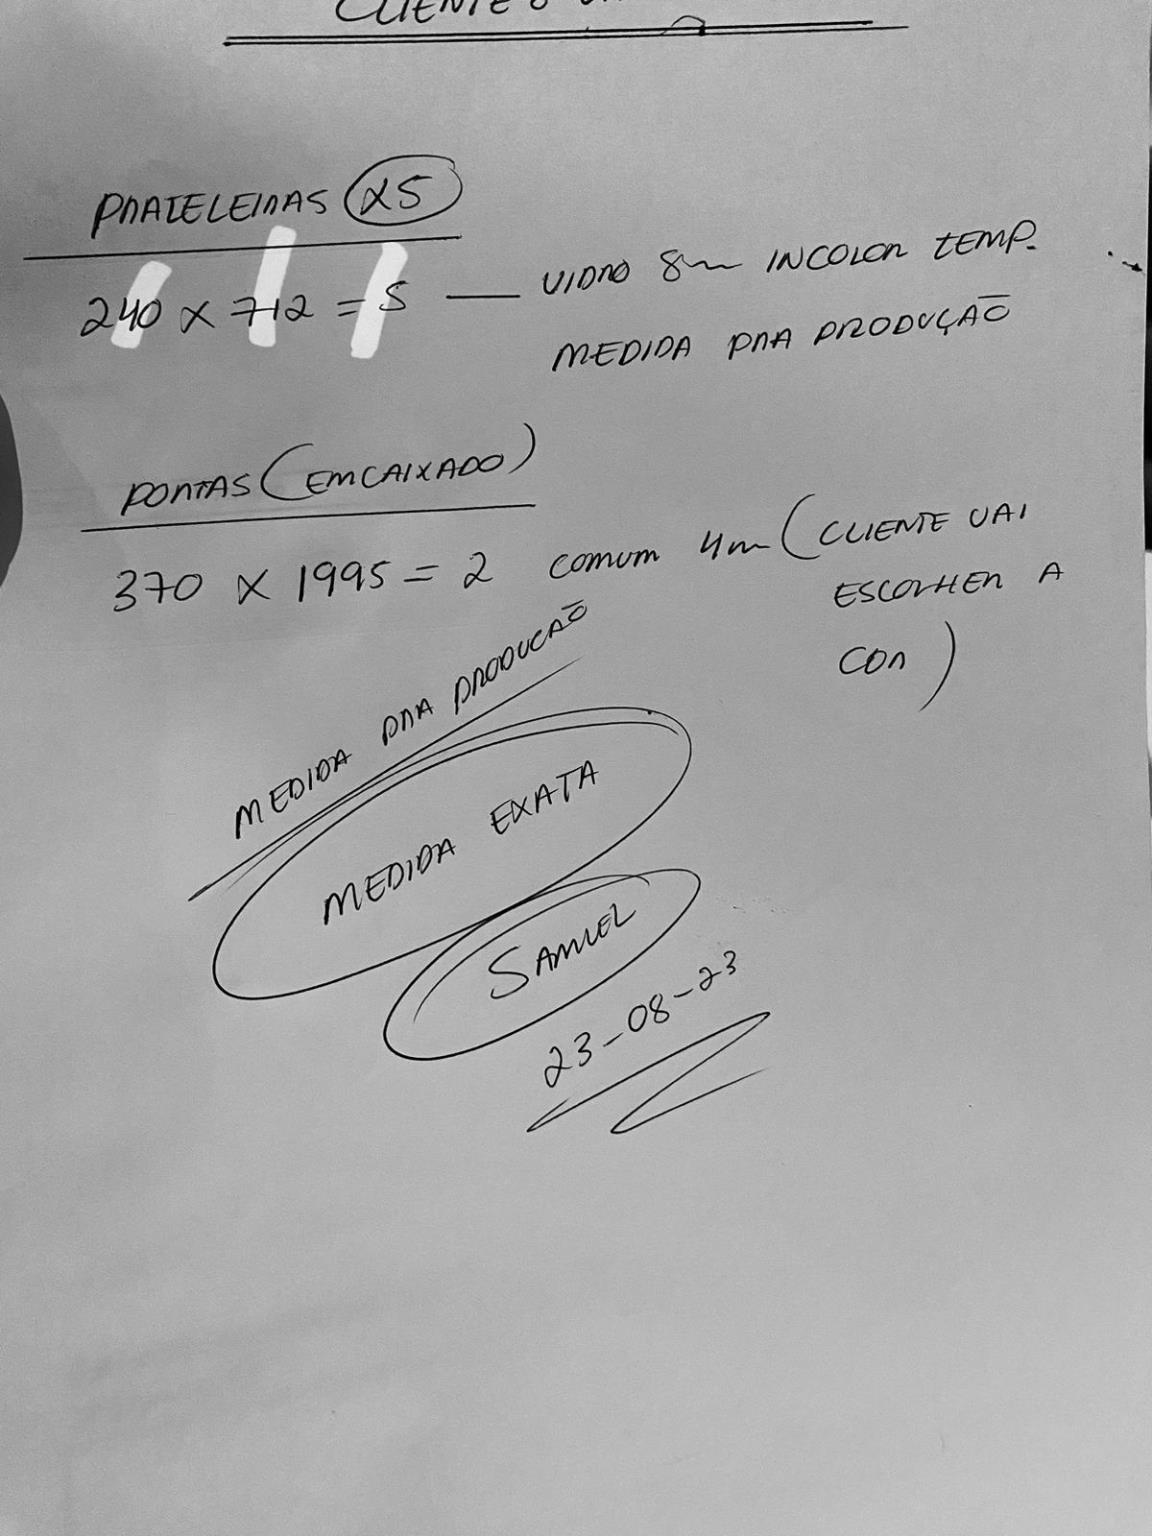 CLIENTE
PRATELEIRAS 25
240 x 712 = 5 — VIDRO 8m INCOLOR TEMP.
MEDIDA PRA PRODUÇÃO
PORTAS (EMCAIXADO)
370 x 1995 = 2 comum 4m (CLIENTE VAI
ESCOLHER A
COR)
MEDIDA PRA PRODUCAO
MEDIDA EXATA
SAMUEL
23-08-23